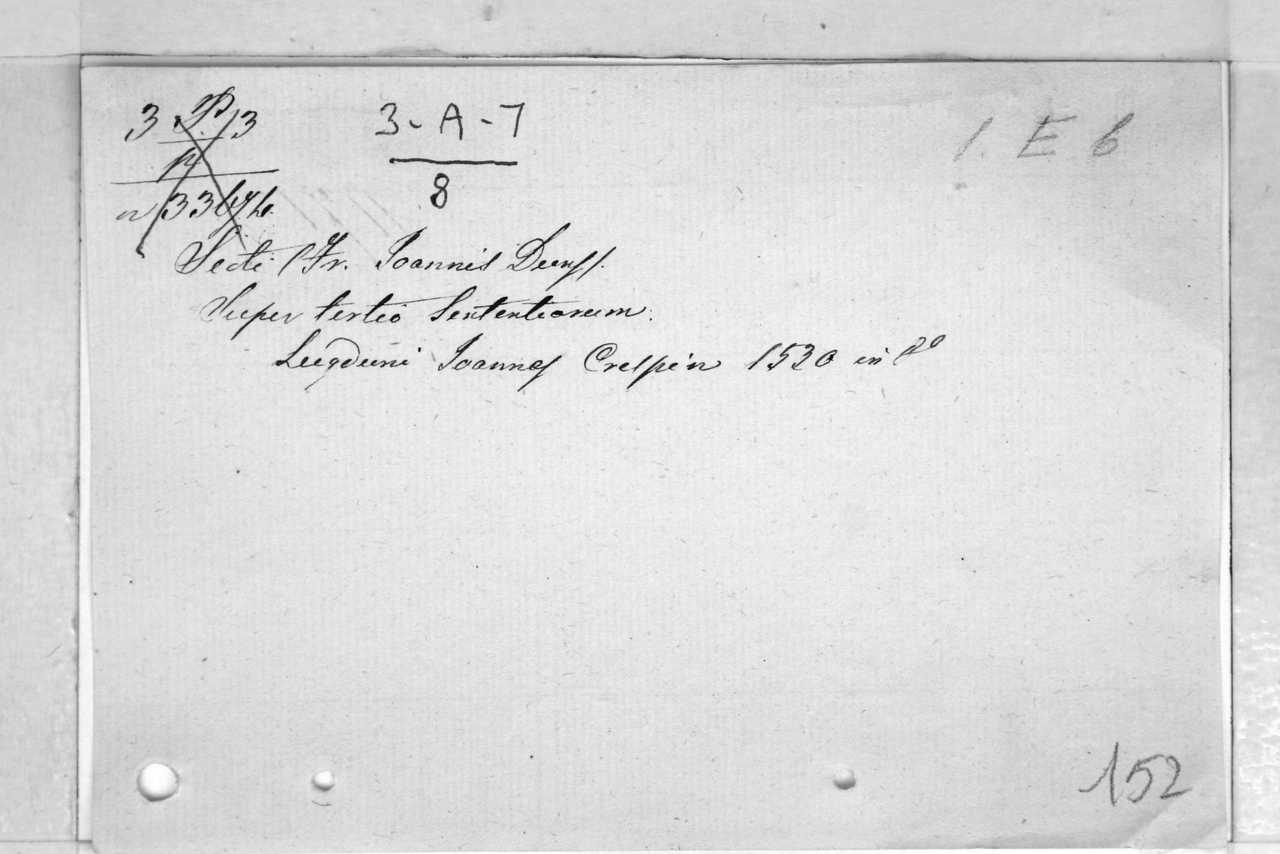 3 P. 13
3-A-7
1. E 6
8
Secti (Fr. Joannis Duns).
Super tertio Sententiarum.
Lugduni Joannes Crespin 1530 in 8o
152